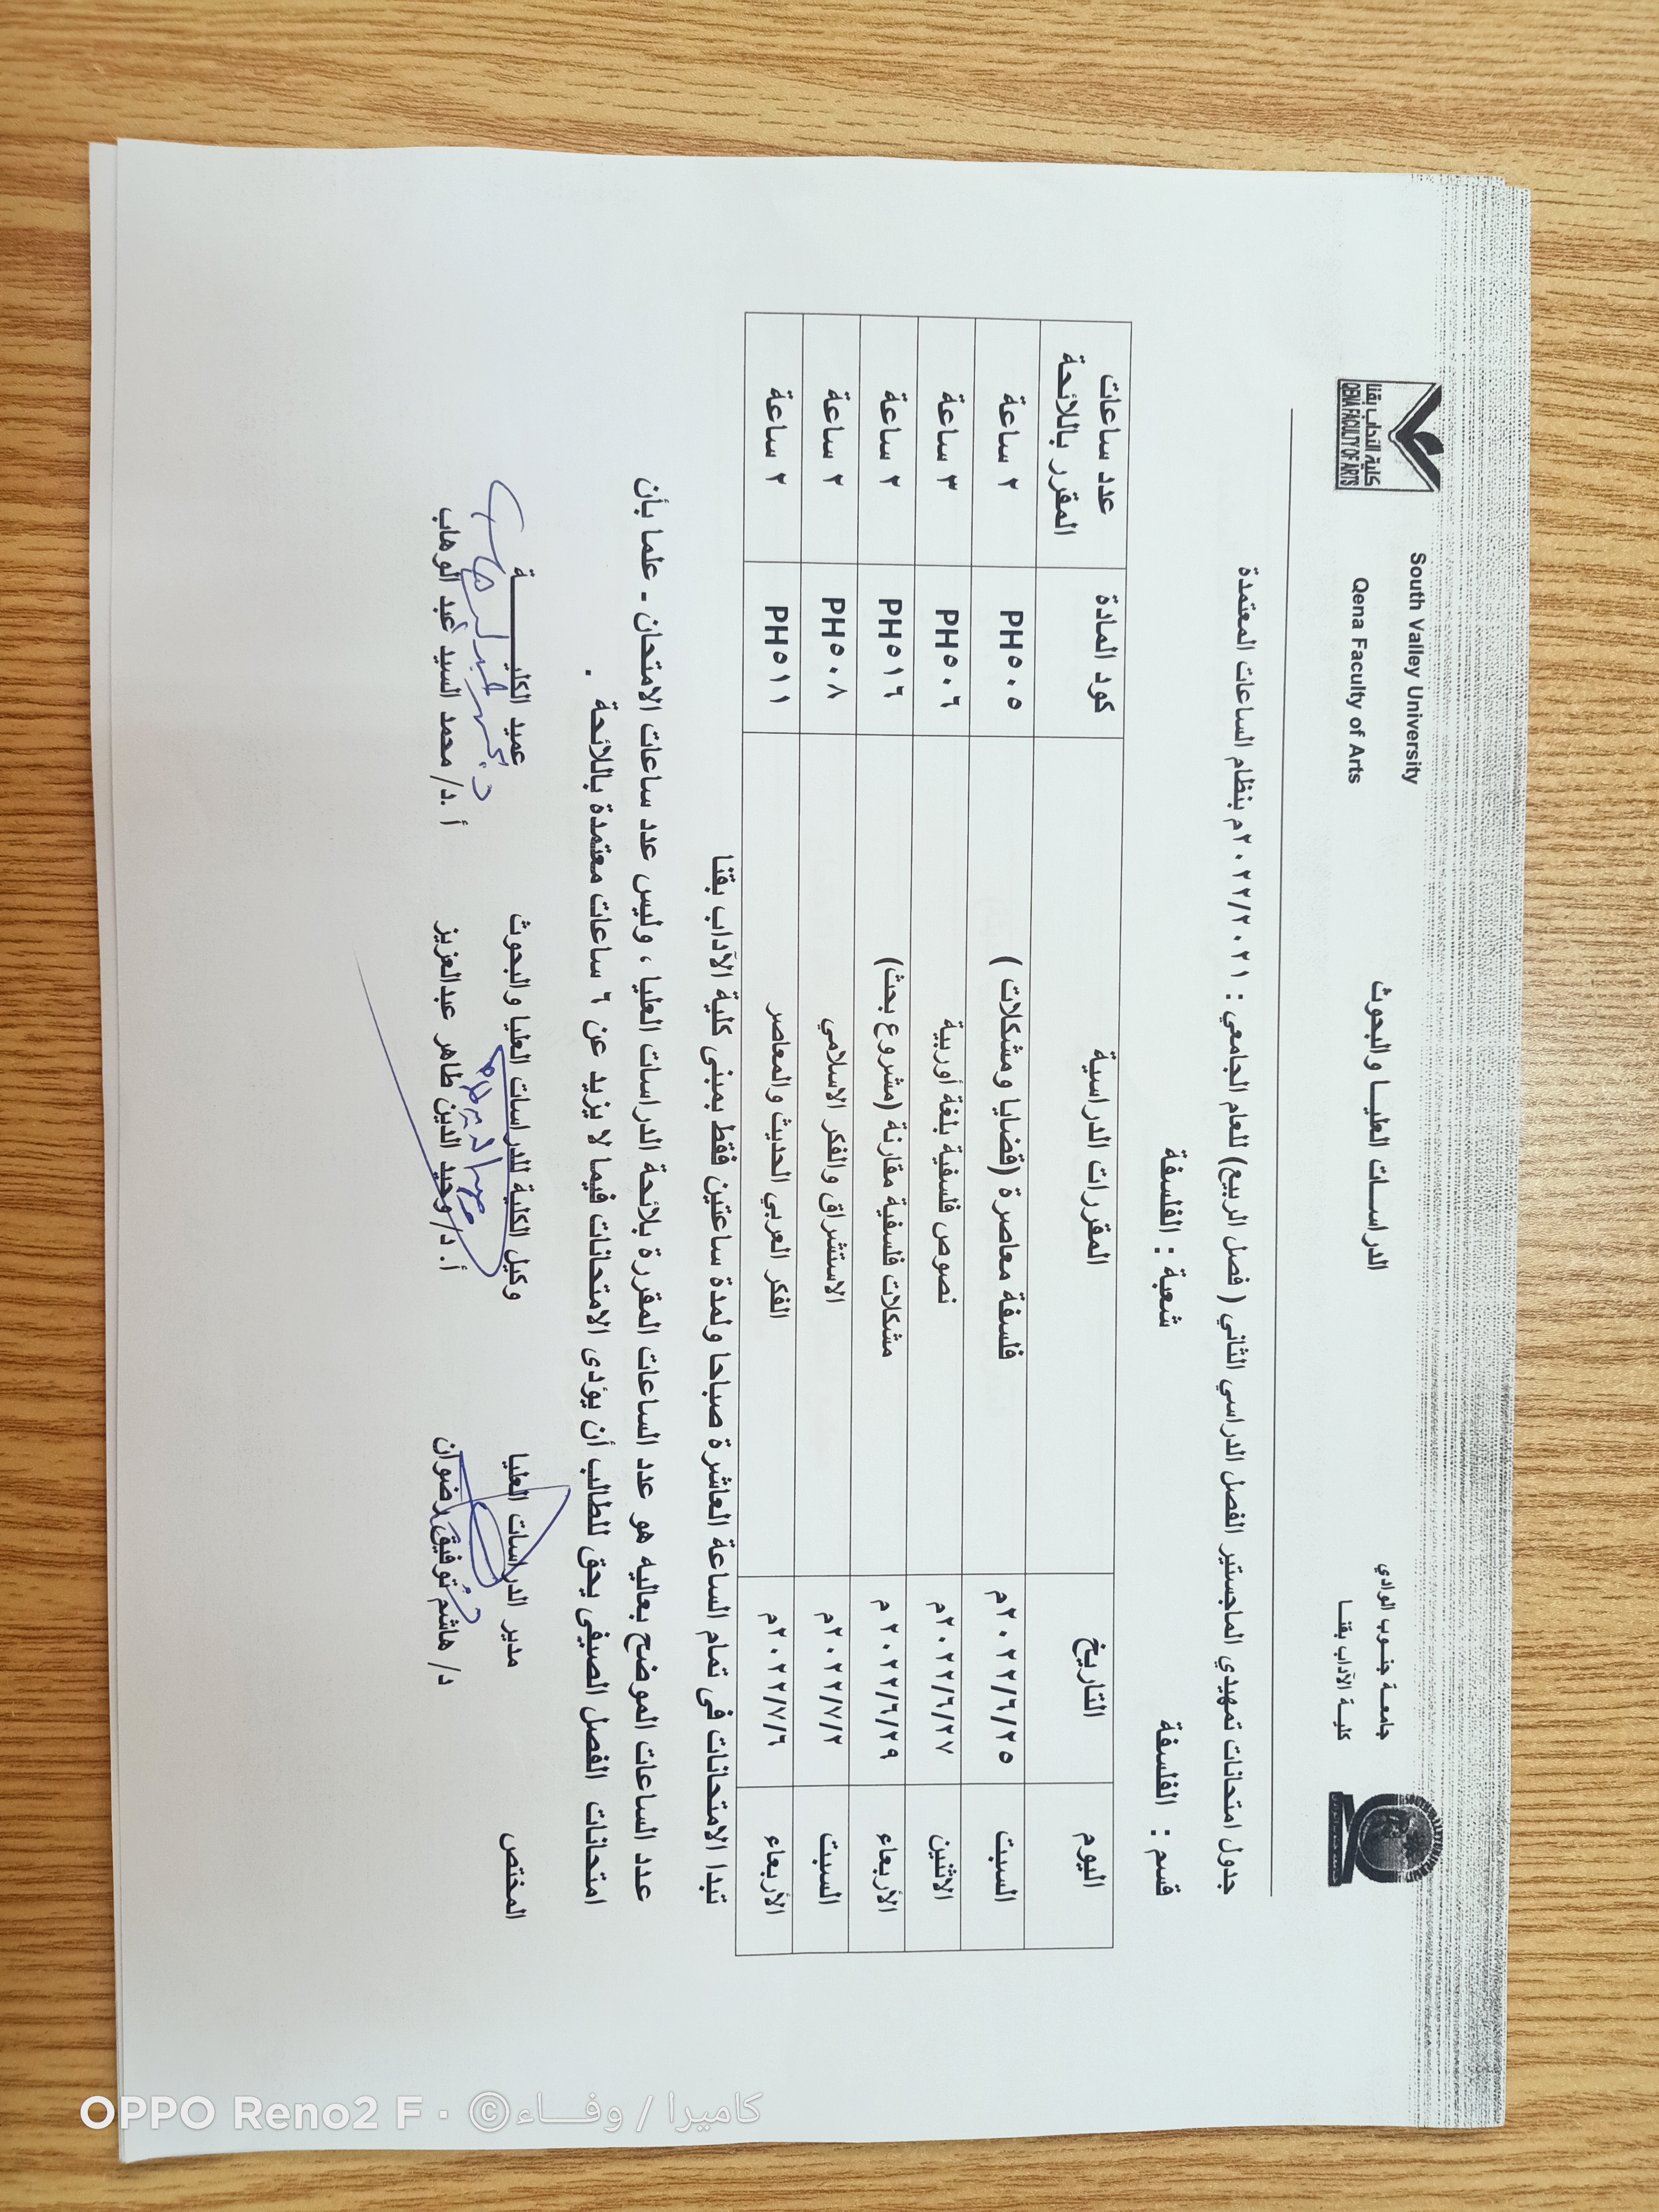 جامعة جنوب الوادي
كلية الآداب بقنا
الدراسات العليا والبحوث
South Valley University
Qena Faculty of Arts
كلية الآداب بقنا
QENA FACULTY OF ARTS
جدول امتحانات تمهيدي الماجستير الفصل الدراسي الثاني ( فصل الربيع) للعام الجامعي : ٢٠٢٢/٢٠٢١م بنظام الساعات المعتمدة
قسم : الفلسفة شعبة : الفلسفة
اليوم التاريخ المقررات الدراسية كود المادة عدد ساعات المقرر باللائحة
السبت ٢٠٢٢/٦/٢٥م فلسفة معاصرة (قضايا ومشكلات ) PH٥٠٥ ٢ ساعة
الاثنين ٢٠٢٢/٦/٢٧م نصوص فلسفية بلغة أوربية PH٥٠٦ ٣ ساعة
الأربعاء ٢٠٢٢/٦/٢٩ م مشكلات فلسفية مقارنة (مشروع بحث) PH٥١٦ ٢ ساعة
السبت ٢٠٢٢/٧/٢م الاستشراق والفكر الاسلامي PH٥٠٨ ٢ ساعة
الأربعاء ٢٠٢٢/٧/٦م الفكر العربي الحديث والمعاصر PH٥١١ ٢ ساعة
تبدا الامتحانات فى تمام الساعة العاشرة صباحا ولمدة ساعتين فقط بمبنى كلية الآداب بقنا
عدد الساعات الموضح بعاليه هو عدد الساعات المقررة بلائحة الدراسات العليا ، وليس عدد ساعات الامتحان - علما بأن
امتحانات الفصل الصيفى يحق للطالب أن يؤدى الامتحانات فيما لا يزيد عن ٦ ساعات معتمدة باللائحة .
المختص مدير الدراسات العليا وكيل الكلية للدراسات العليا والبحوث عميد الكليـــــة
د/ هاشم توفيق رضوان أ.د/ وحيد الدين طاهر عبدالعزيز أ.د/ محمد السيد عبد الوهاب
OPPO Reno2 F · ©كاميرا / وفـــاء